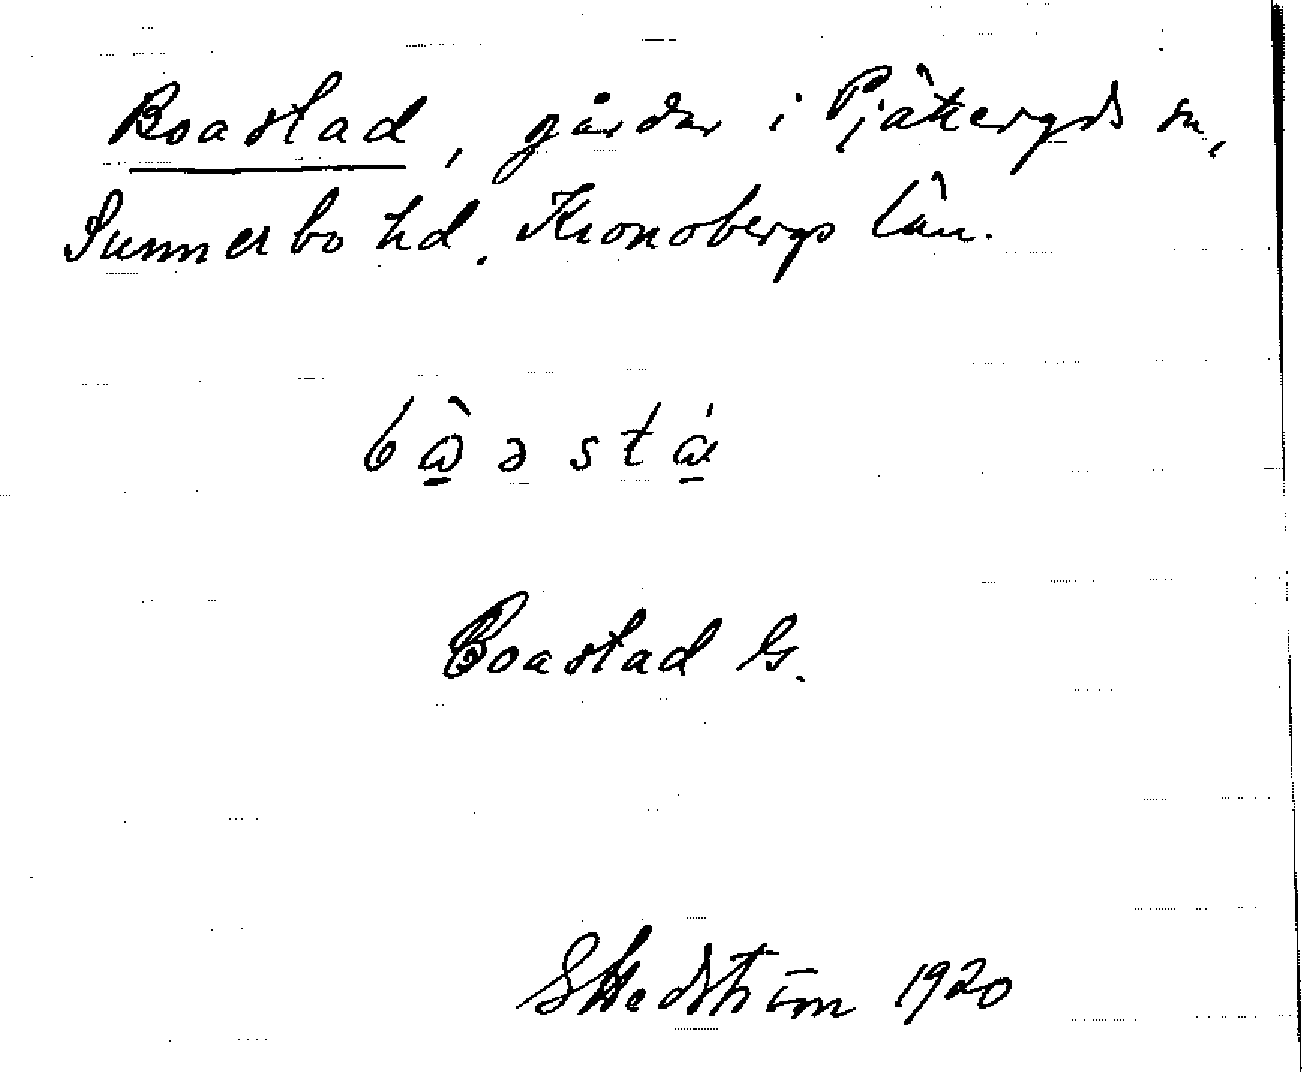 Boastad, gårdar i Pjätteryds sn,
Sunnerbo hd. Kronobergs län.
bὼəstά
Boastad G.
S Hedström 1920